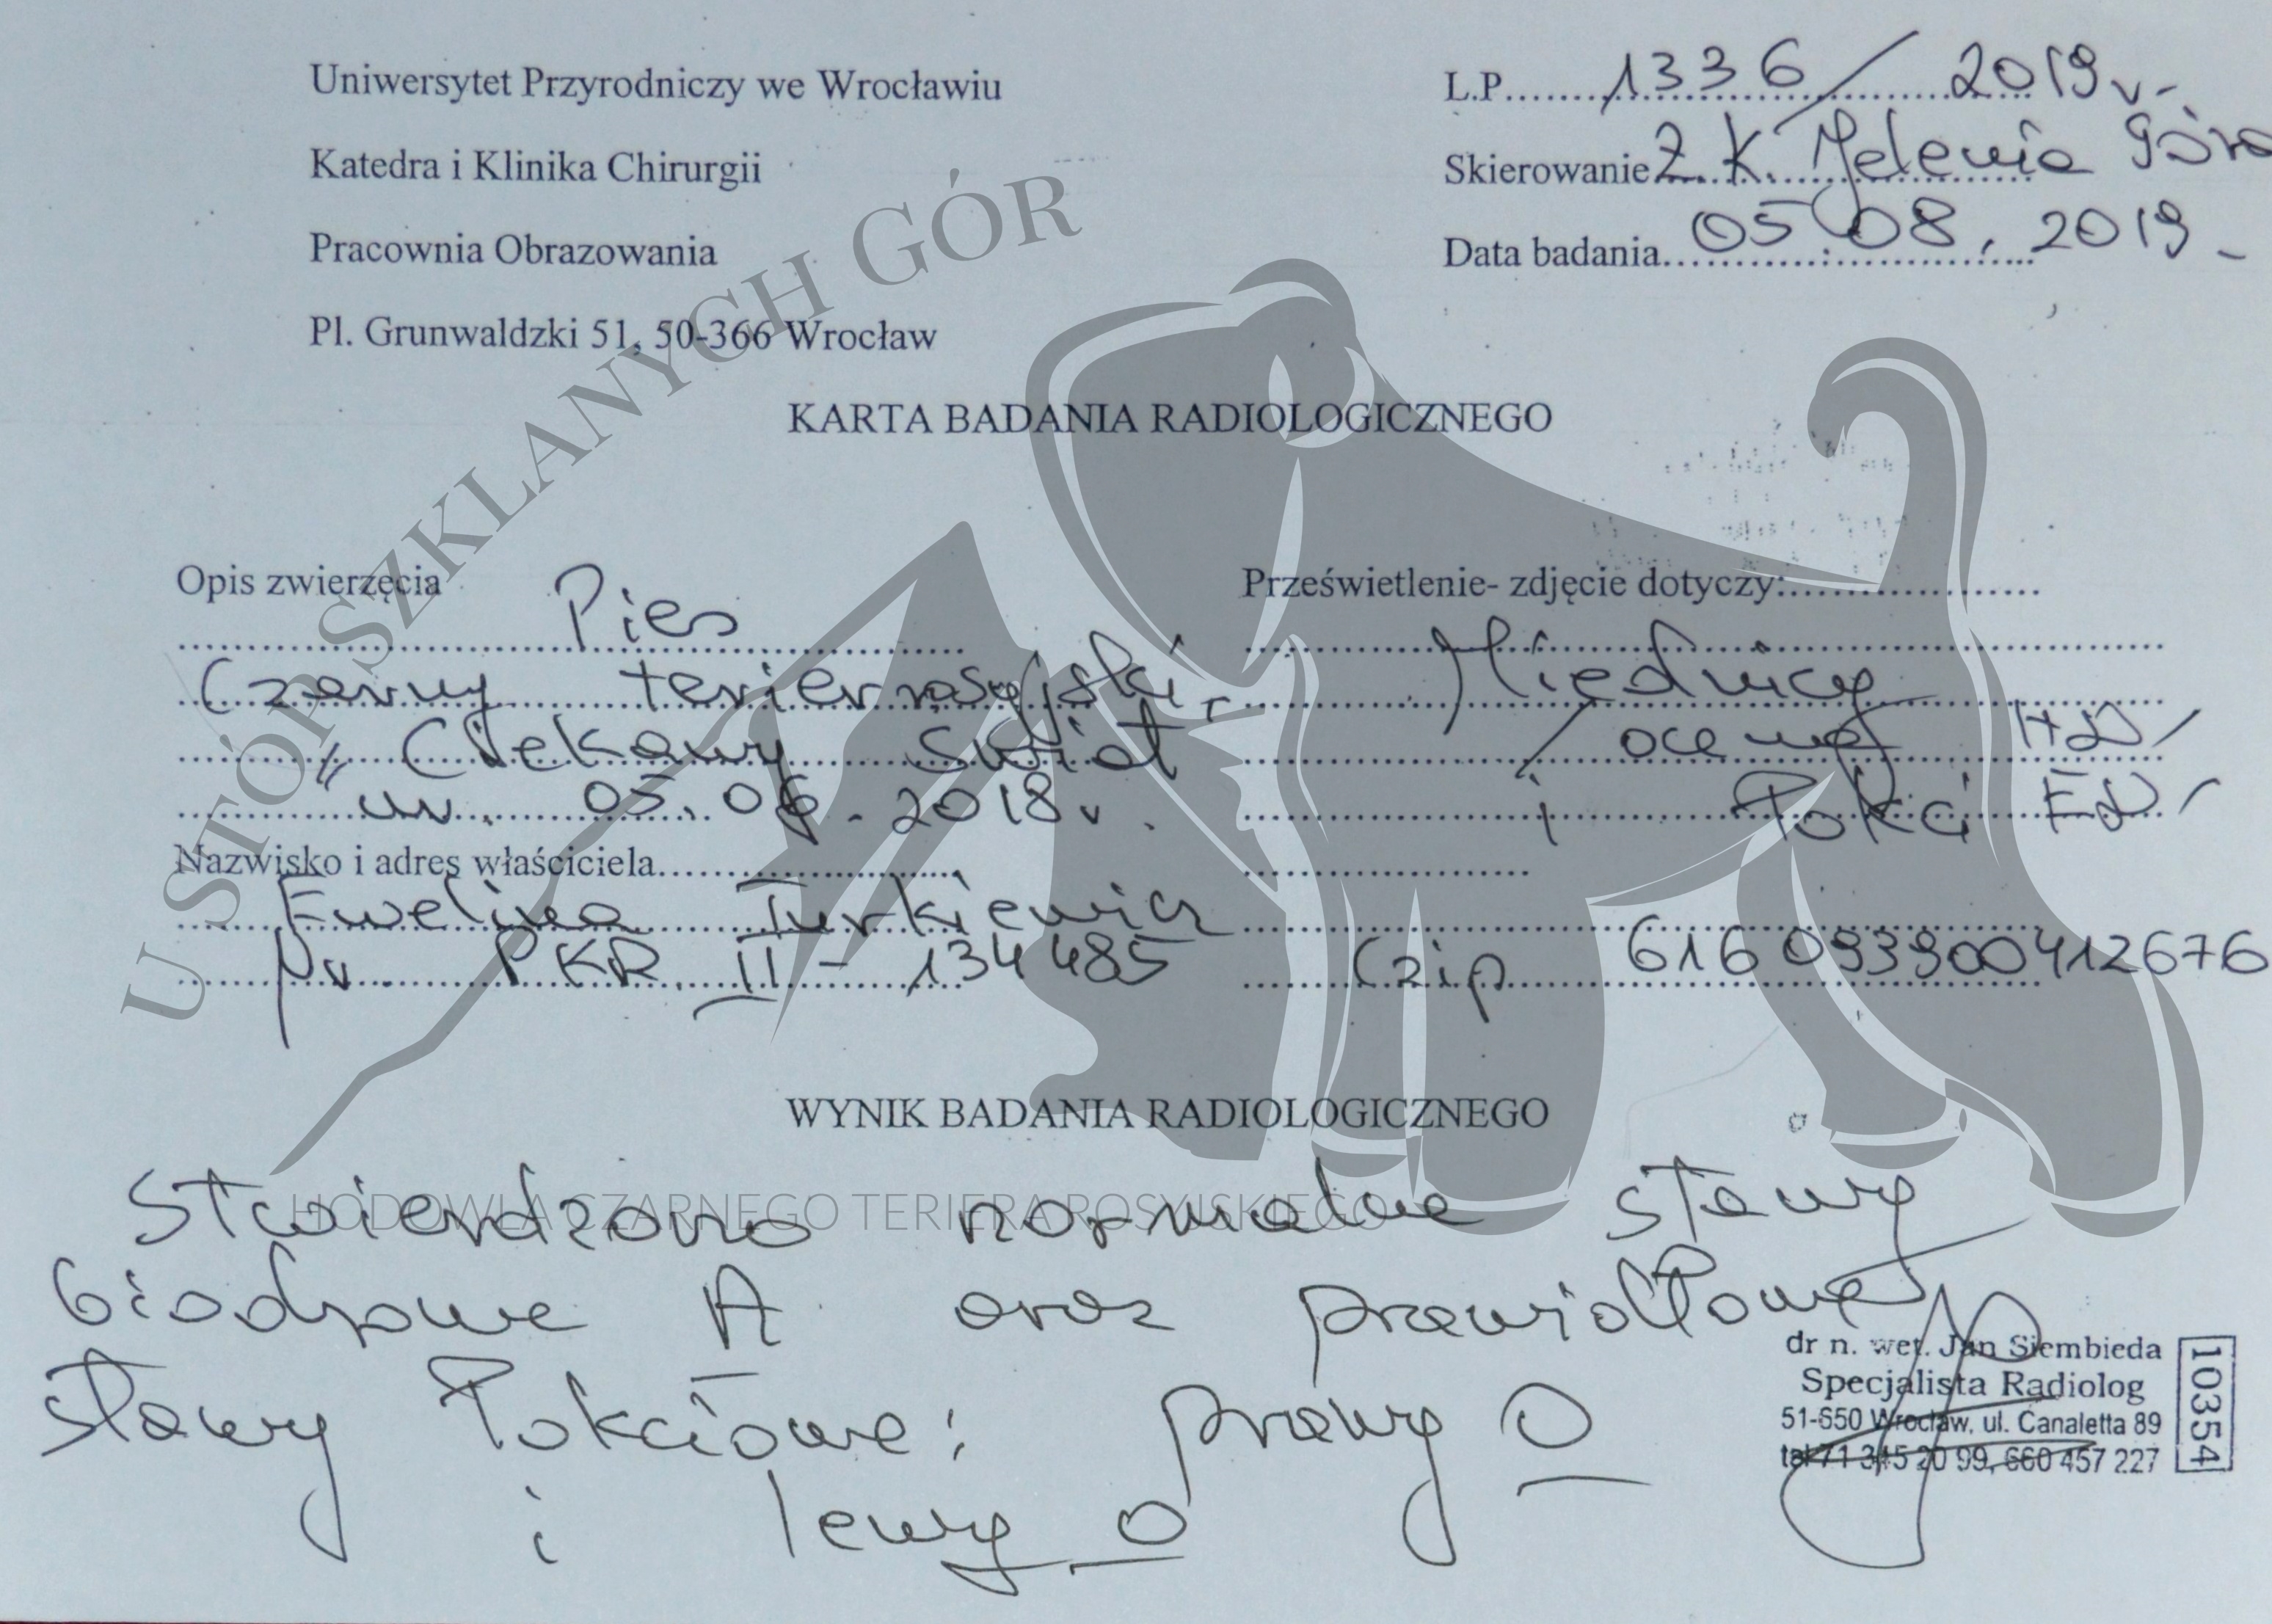 Uniwersytet Przyrodniczy we Wrocławiu
Katedra i Klinika Chirurgii
Pracownia Obrazowania
Pl. Grunwaldzki 51, 50-366 Wrocław
L.P. 1336/2019 r.
Skierowanie Z.K. Jelenia Góra
Data badania 05.08.2019
U STÓP SZKLANYCH GÓR
KARTA BADANIA RADIOLOGICZNEGO
Opis zwierzęcia
Pies
Czarny terier rosyjski,
„Ciekawy Świat
ur. 05.06.2018 r.
Nazwisko i adres właściciela
Ewelina Turkiewicz
Nr PKR II-134485
Prześwietlenie- zdjęcie dotyczy:
Miednicy
/ocena HD/
i łokci ED/
Czip 616093900412676
WYNIK BADANIA RADIOLOGICZNEGO
HODOWLA CZARNEGO TERIERA ROSYJSKIEGO
Stwierdzono normalne stawy
biodrowe A oraz prawidłowe
stawy łokciowe: prawy 0
i lewy 0
dr n. wet. Jan Siembieda
Specjalista Radiolog
51-650 Wrocław, ul. Canaletta 89
tel 71 345 20 99, 660 457 227
10354